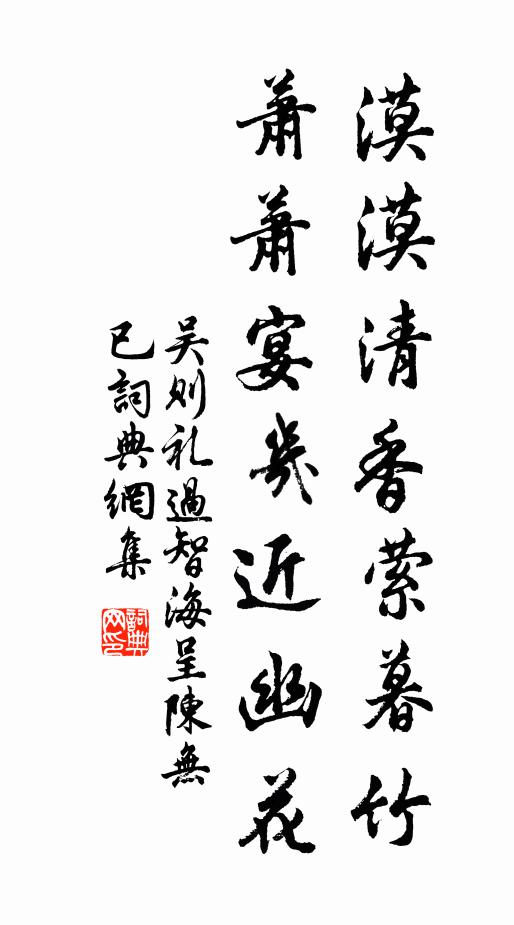 漠漠清香縈暮竹
蕭蕭宴几近幽花
吴則礼過智海呈陳無
已詞典網集
詞典
网印